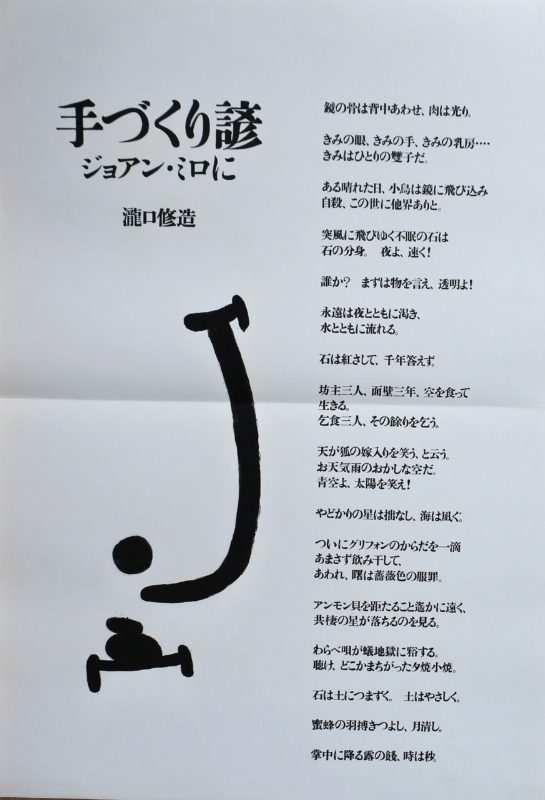 手づくり諺
ジョアン・ミロに
瀧口修造
鏡の骨は背中あわせ、肉は光り。
きみの眼、きみの手、きみの乳房‥‥
きみはひとりの雙子だ。
ある晴れた日、小鳥は鏡に飛び込み
自殺、この世に他界ありと。
突風に飛びゆく不眠の石は
石の分身。 夜よ、速く!
誰か? まずは物を言え、透明よ!
永遠は夜とともに渇き、
水とともに流れる。
石は紅さして、千年答えず。
坊主三人、面壁三年、空を食って
生きる。
乞食三人、その餘りを乞う。
天が狐の嫁入りを笑う、と云う。
お天気雨のおかしな空だ。
青空よ、太陽を笑え!
やどかりの星は拙なし、海は凪ぐ。
ついにグリフォンのからだを一滴
あまさず飲み干して、
あわれ、曙は薔薇色の服罪。
アンモン貝を距たること遥かに遠く、
共棲の星が落ちるのを見る。
わらべ唄が蟻地獄に谺する。
聴け、どこかまちがった夕焼小焼。
石は土につまずく。 土はやさしく。
蜜蜂の羽搏きつよし、月清し。
掌中に降る露の餞、時は秋。